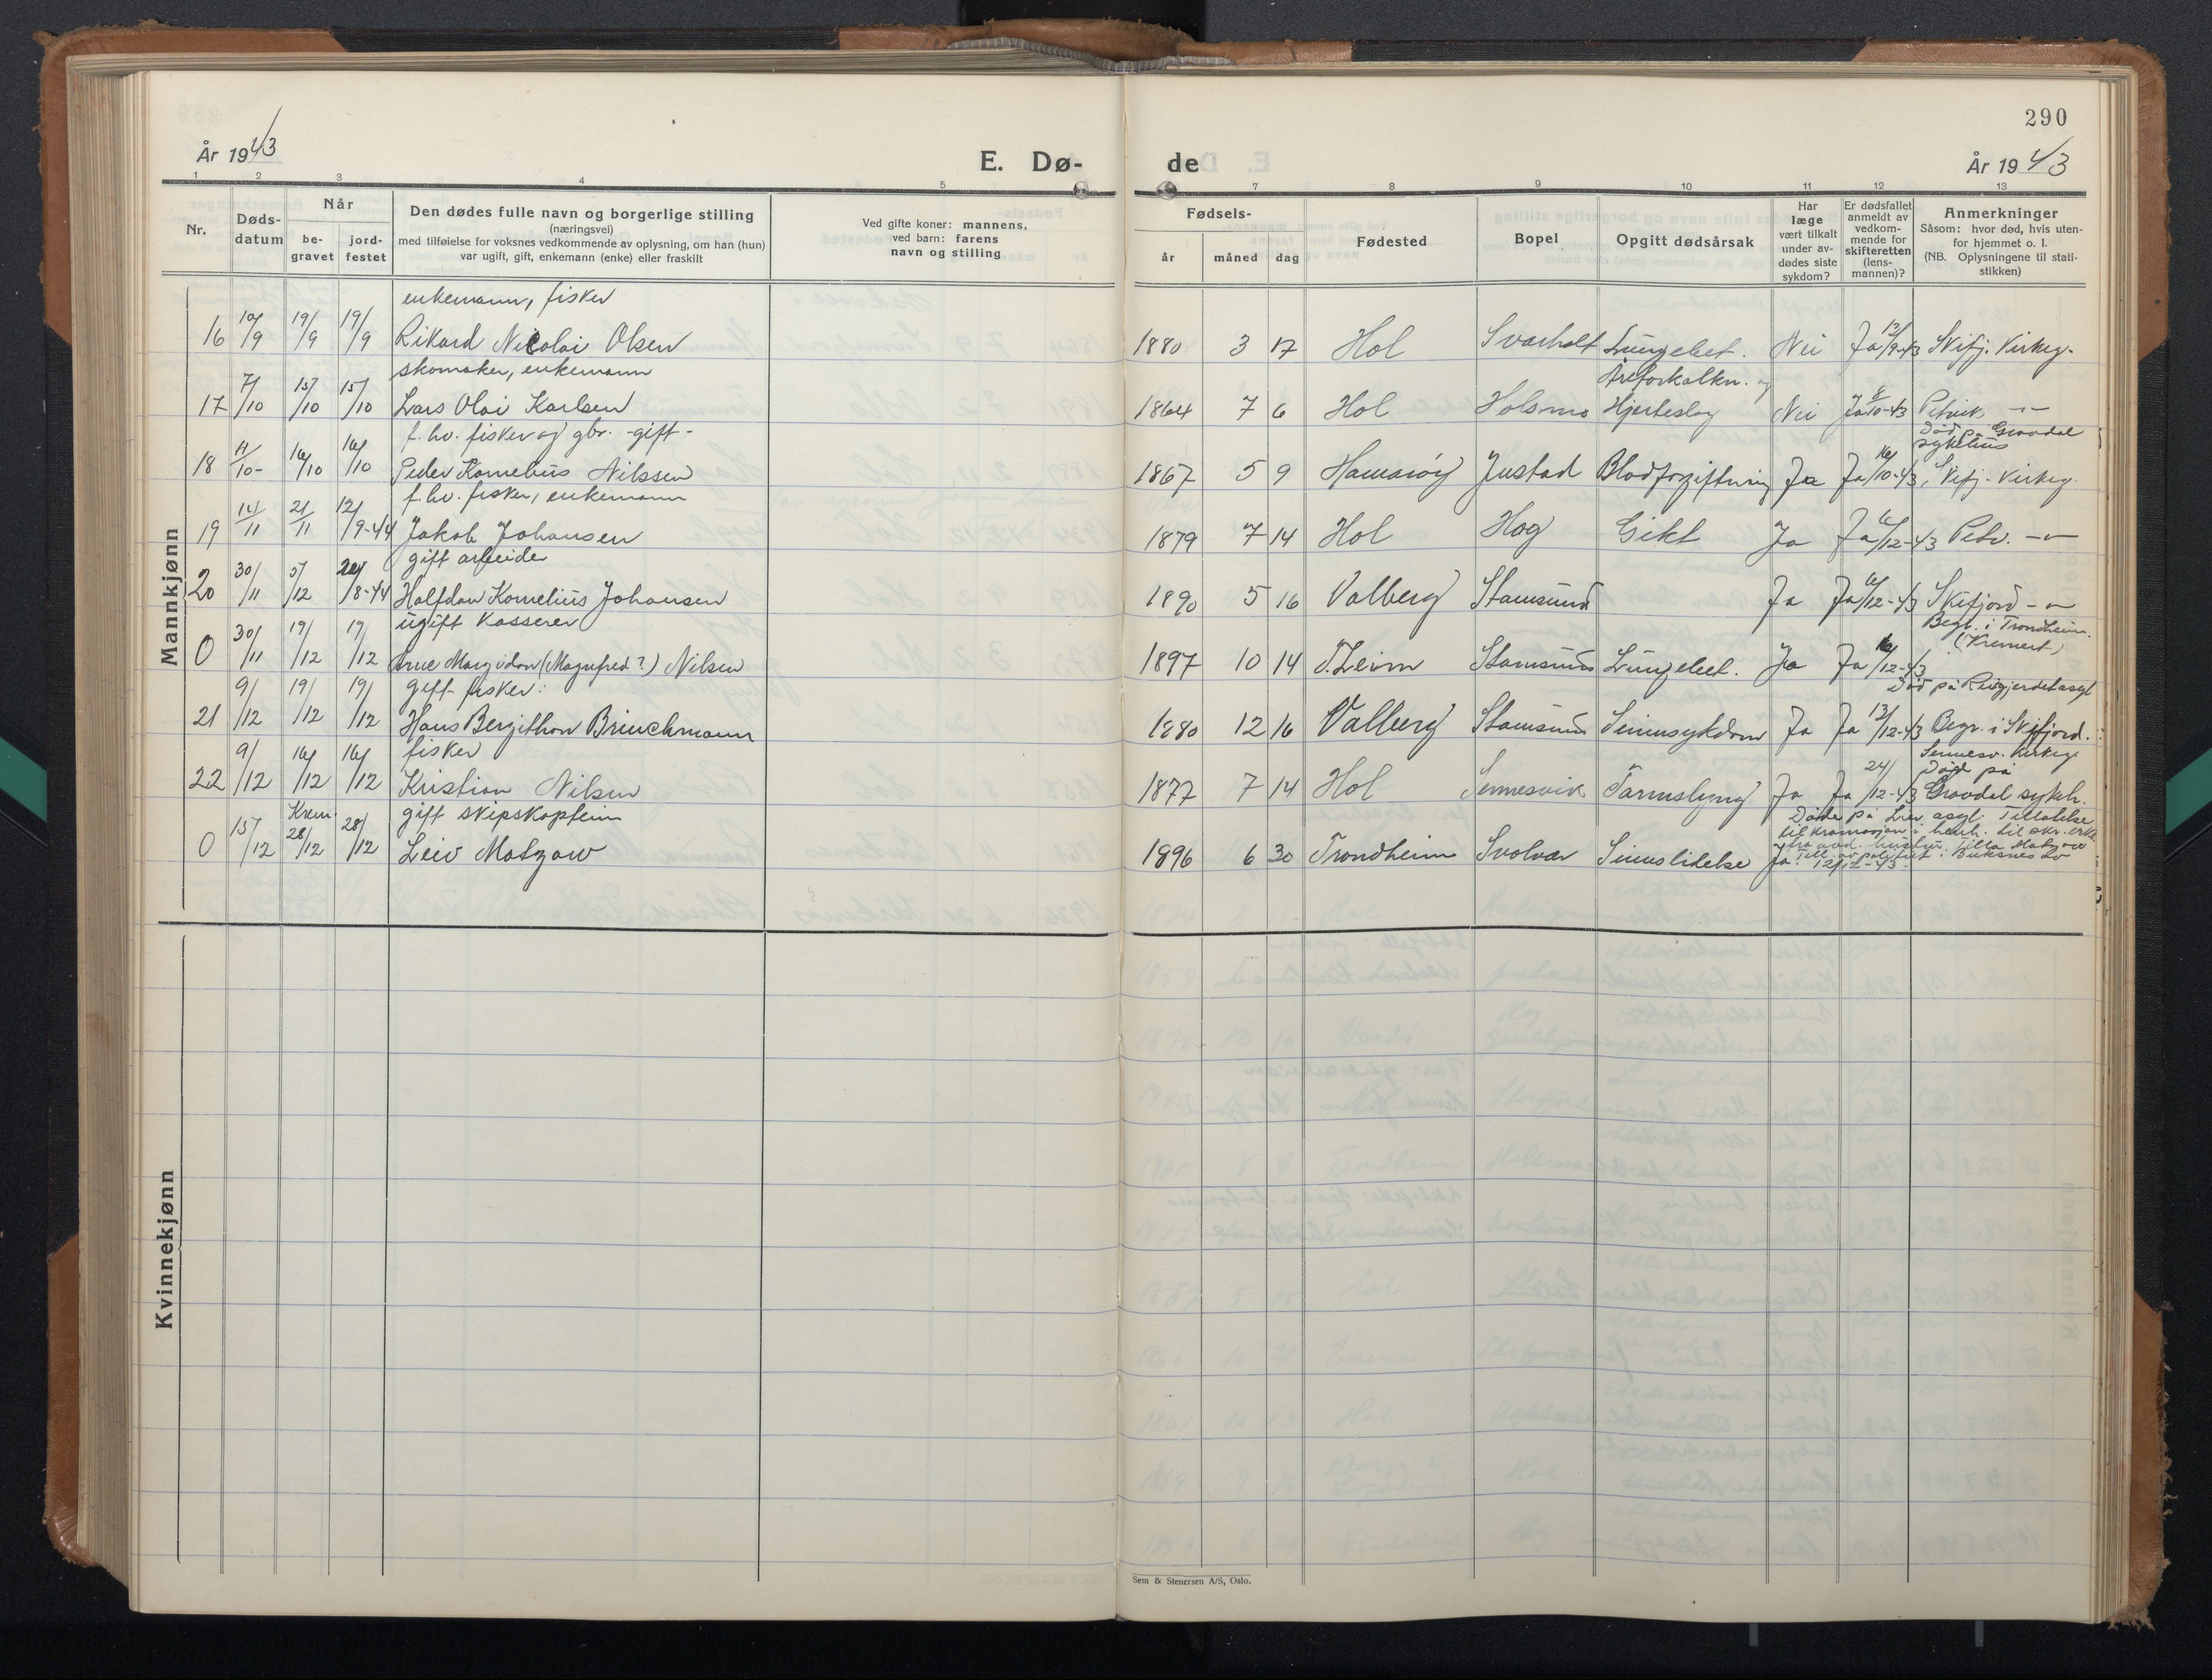 290
År 1943
E. Dø-
de
År 1943
1 2 3 4 5 7 8 9 10 11 12 13
Nr.
Døds-
datum
Når
be-
gravet
jord-
festet
Den dødes fulle navn og borgerlige stilling
(næringsvei)
med tilføielse for voksnes vedkommende av oplysning, om han (hun)
var ugift, gift, enkemann (enke) eller fraskilt
Ved gifte koner: mannens,
ved barn: farens
navn og stilling
Fødsels-
år
måned
dag
Fødested
Bopel
Opgitt dødsårsak
Har
læge
vært tilkalt
under av-
dødes siste
sykdom?
Er dødsfallet
anmeldt av
vedkom-
mende for
skifteretten
(lens-
mannen)?
Anmerkninger
Såsom: hvor død, hvis uten-
for hjemmet o. l.
(NB. Oplysningene til stati-
stikken)
Mannkjønn
enkemann, fisker
16 10/9 19/9 19/9 Rikard Nicolai Olsen 1880 3 17 Hol Svarholt Lungebet. Nei Ja 13/9-43 Skifj. Kirkeg.
skomaker, enkemann Åreforkalkn. og
17 7/10 15/10 15/10 Lars Olai Karlsen 1864 7 6 Hol Holsmo Hjerteslag Nei Ja 8/10-43 Petvik -"-
f. hv. fisker og gbr. -gift- Død på Gravdal
sykehus
18 11/10- 16/10 16/10 Peder Kornelius Nilssen 1867 5 9 Hamarøy Justad Blodforgiftning Ja Ja 16/10-43 Skifj. Kirkeg.
f. hv. fisker, enkemann
19 14/11 21/11 12/9-44 Jakob Johansen 1879 7 14 Hol Hag Gikt Ja Ja 6/12-43 Petv. -"-
gift arbeider
20 30/11 5/12 20/8-44 Halfdan Kornelius Johansen 1890 5 16 Valberg Stamsund Ja Ja 6/12-43 Skifjord -"-
ugift Kasserer Begr. i Trondheim.
(Kremert)
0 30/11 19/12 19/12 Arne Margidon (Magnfred?) Nilsen 1897 10 14 Stamsund Lungebet. Ja Ja 16/12-43
gift fisker: Død på Reitgjerdet asyl
21 9/12 19/12 19/12 Hans Bergithon Brinchmann 1880 12 16 Valberg Stamsund Sinnsykdom Ja Ja 13/12-43 Begr. i Skifjord.
fisker Sennesv. Kirkeg.
Død på
22 9/12 16/12 16/12 Kristian Nilsen 1877 7 14 Hol Sennesvik Tarmslyng Ja Ja 24/12-43 Gravdal sykh.
gift skipskaptein Døde på asyl. Tillatelse
til kremasjon i henh. til skr.
hustru Tilla Matzow
0 15/12 Krem. 28/12 28/12 Leiv Matzow 1896 6 30 Trondheim Svolvær Sinnslidelse Ja. Till. av politiet i Buksnes
12/12-43.
Kvinnekjønn
Sem & Stenersen A/S, Oslo.